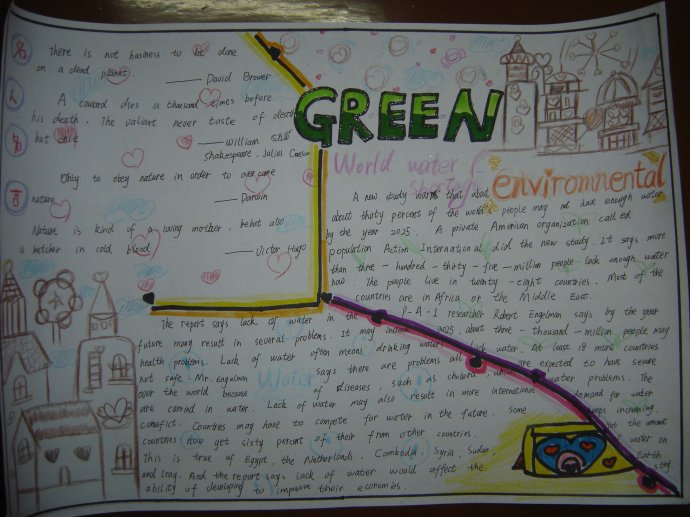 名
人
名
言
There is not business to be done
on a dead planet
—— David Brower
A coward dies a thousand times before
his death. The valiant never taste of death
but
—— William
Shakespeare, Julius Caesar
Obly to obey nature in order to overcome
nature
—— Darwin
Nature is kind of a loving mother, but also
a butcher in cold blood
—— Victor Hugo
GREEN
World water
shortage
enviromnental
A new study warns that about
about thirty percent of the world people may not have enough water
by the year 2025. A private American organization called
population Action International did the new study. It says more
than three-hundred-thirty-five-million people lack enough water
now. The people live in twenty-eight countries. Most of the
countries are in Africa or the Middle East.
P-A-I researcher Robert Engelman says by the year
2025, about three-thousand-million people may
lack water. At least 18 more countries
are expected to have severe
water problems. The
demand for water
keeps increasing.
Yet the amount
of water on
Earth
stay.
The report says lack of water in the
future may result in several problems. It may
health problems. Lack of water often means drinking water
not safe. Mr. Engelman says there are problems all
over the world because of diseases, such as cholera, which
are carried in water. Lack of water may also result in more international
conflict. Countries may have to compete for water in the future. Some
countries now get sixty percent of their from other countries.
This is true of Egypt, the Netherlands, Cambodia, Syria, Sudan,
and Iraq. And the report says lack of water would affect the
ability of developing to improve their economies.
Water